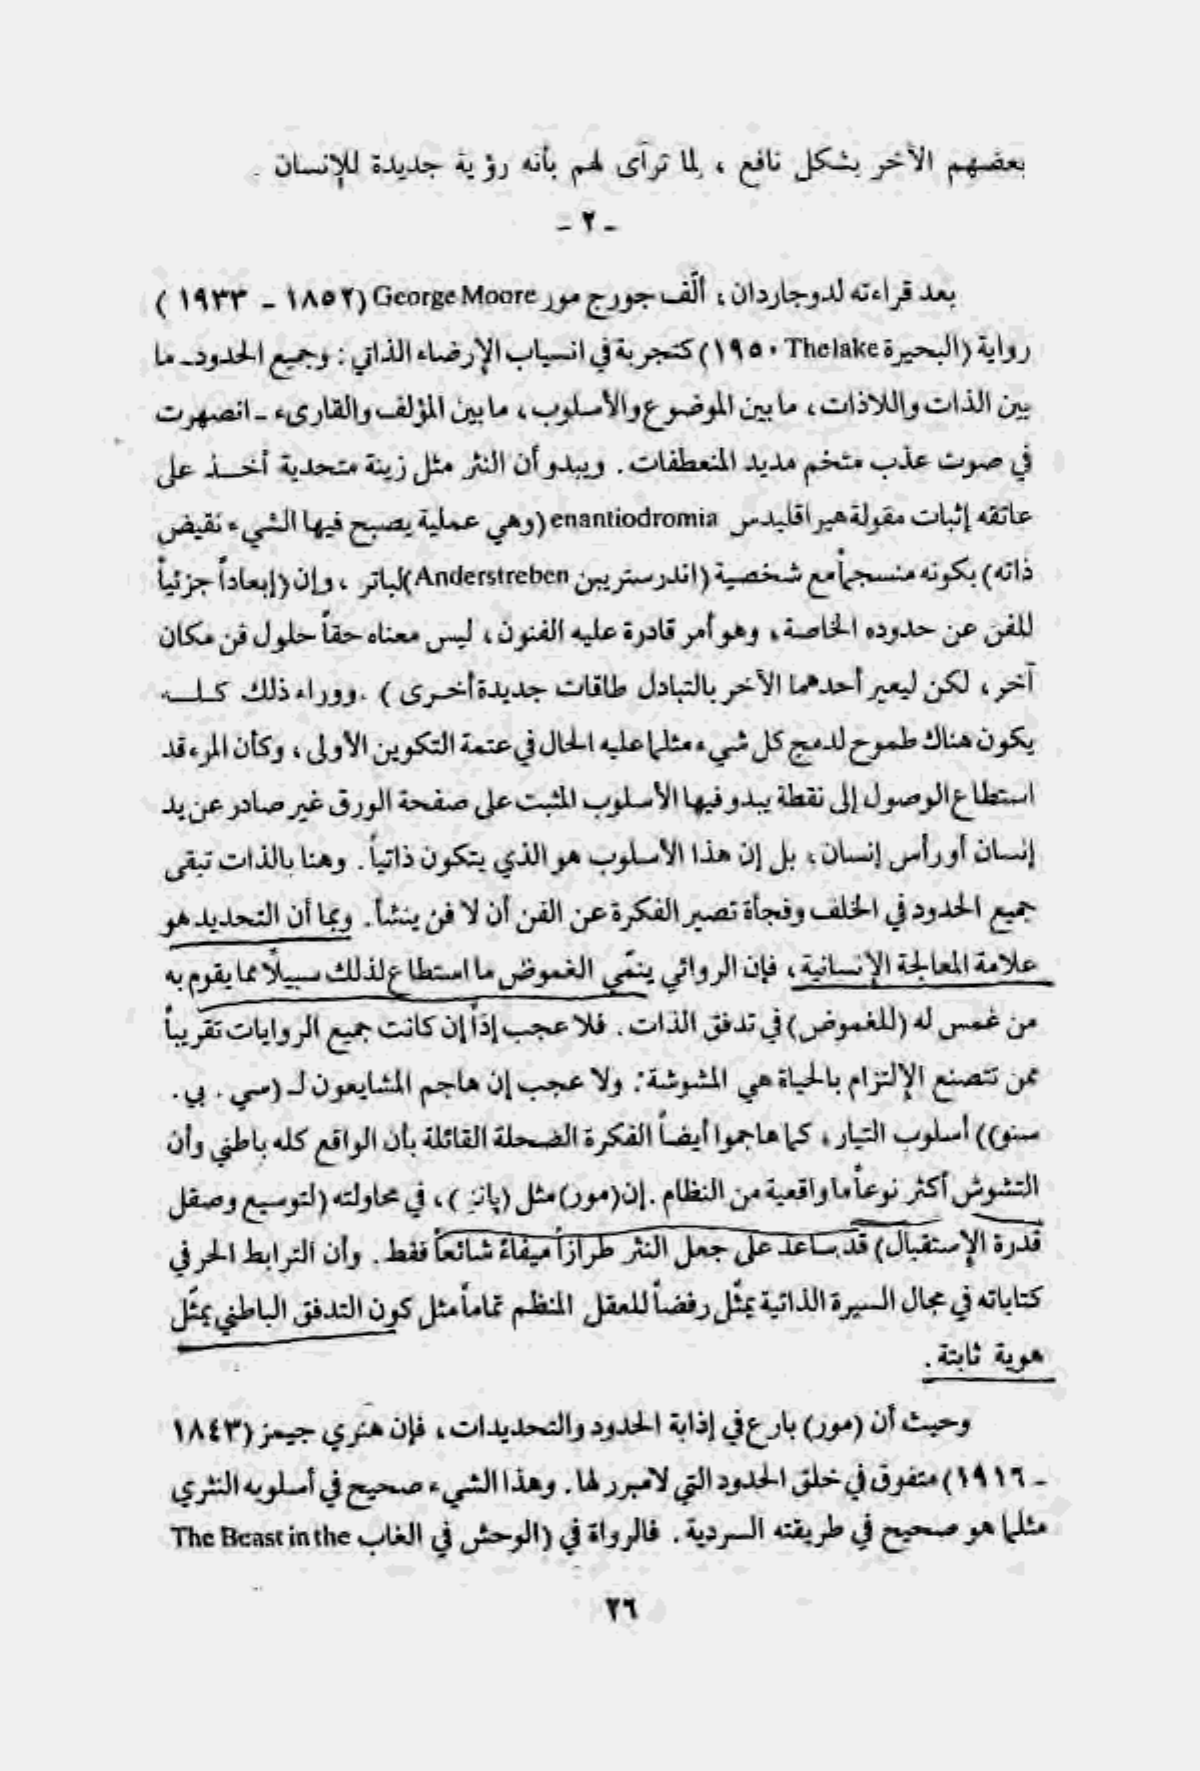 بعضهم الآخر بشكل نافع ، لما تراءى لهم بأنه رؤية جديدة للإنسان .
- ٢ -
بعد قراءته لدوجاردان ، ألّف جورج مور George Moore (١٨٥٢ - ١٩٣٣ )
رواية (البحيرة The lake ١٩٥٠) كتجربة في انسياب الإرضاء الذاتي : وجميع الحدود - ما
بين الذات واللاذات ، ما بين الموضوع والأسلوب ، ما بين المؤلف والقارىء - انصهرت
في صوت عذب متخم مديد المنعطفات . ويبدو أن النثر مثل زينة متحدية أخـذ على
عاتقه إثبات مقولة هيراقليدس enantiodromia (وهي عملية يصبح فيها الشيء نقيض
ذاته) بكونه منسجماً مع شخصية (اندرستريبن Anderstreben) لباتر ، وإن (إبعاداً جزئياً
للفن عن حدوده الخاصة ، وهو أمر قادرة عليه الفنون ، ليس معناه حقاً حلول فن مكان
آخر ، لكن ليعير أحدهما الآخر بالتبادل طاقات جديدة أخـرى ) . ووراء ذلك كـلـه
يكون هناك طموح لدمج كل شيء مثلما عليه الحال في عتمة التكوين الأولى ، وكأن المرء قد
استطاع الوصول إلى نقطة يبدو فيها الأسلوب المثبت على صفحة الورق غير صادر عن يد
إنسان أو رأس إنسان ، بل إن هذا الأسلوب هو الذي يتكون ذاتياً . وهنا بالذات تبقى
جميع الحدود في الخلف وفجأة تصير الفكرة عن الفن أن لا فن ينشأ . وبما أن التحديد هو
علامة المعالجة الإنسانية ، فإن الروائي ينمّي الغموض ما استطاع لذلك سبيلاً مما يقوم به
من غمس له (للغموض) في تدفق الذات . فلا عجب إذاً إن كانت جميع الروايات تقريباً
ممن تتصنع الإلتزام بالحياة هي المشوشة : ولا عجب إن هاجم المشايعون لـ (سي . بي .
سنو)) أسلوب التيار ، كما هاجموا أيضاً الفكرة الضحلة القائلة بأن الواقع كله باطني وأن
التشوش أكثر نوعاً ما واقعية من النظام . إن (مور) مثل ( ) ، في محاولته (لتوسيع وصقل
قدرة الإستقبال) قد ساعد على جعل النثر طرازاً ميفاءً شائعاً فقط . وأن الترابط الحر في
كتاباته في مجال السيرة الذاتية يمثّل رفضاً للعقل المنظم تماماً مثل كون التدفق الباطني يمثّل
هوية ثابتة .
وحيث أن (مور) بارع في إذابة الحدود والتحديدات ، فإن هنري جيمز (١٨٤٣
- ١٩١٦) متفوق في خلق الحدود التي لا مبرر لها . وهذا الشيء صحيح في أسلوبه النثري
مثلما هو صحيح في طريقته السردية . فالرواة في (الوحش في الغاب The Beast in the
٢٦